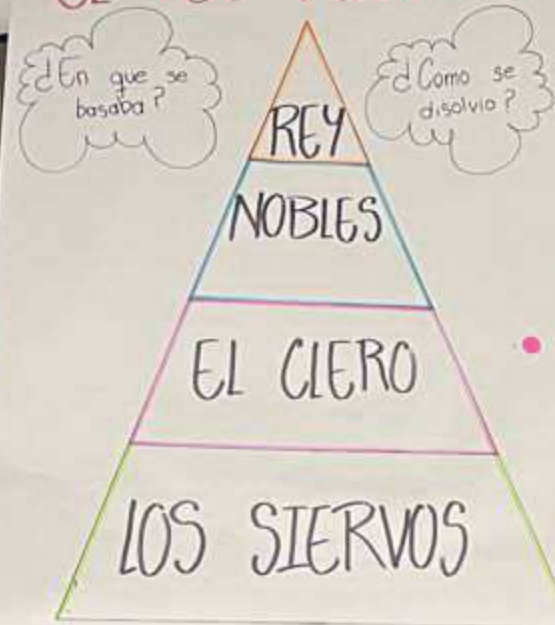 ¿En que se
basaba?
¿Como se
disolvio?
REY
NOBLES
EL CLERO
LOS SIERVOS